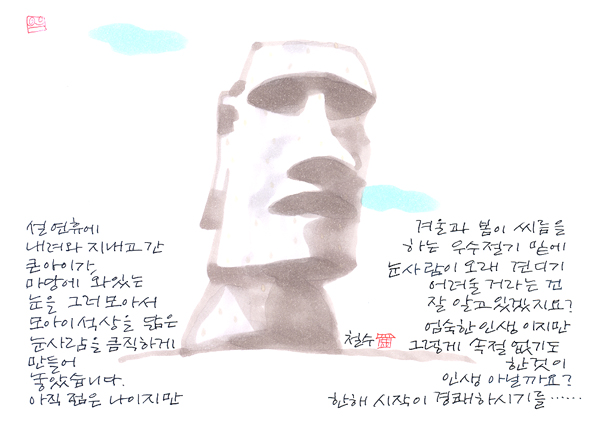 설 연휴에
내려와 지내고 간
큰아이가,
마당에 와있는
눈을 그러모아서
모아이석상을 닮은
눈사람을 큼직하게
만들어
놓았습니다.
아직 젊은 나이지만
겨울과 봄이 씨름을
하는 우수절기 밑에
눈사람이 오래 견디기
어려울 거라는 건
잘 알고 있겠지요?
엄숙한 인생이지만
그렇게 속절없기도
한것이
인생 아닐까요?
한해 시작이 경쾌하시기를……
철수